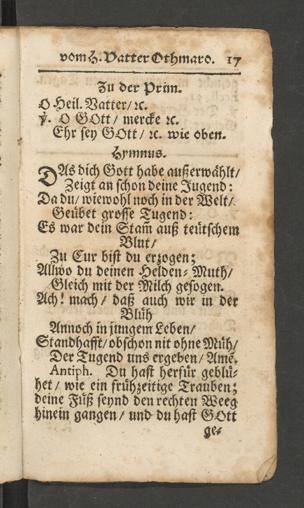 vom H. Vatter Othmaro. 17
Zu der Prim.
O Heil. Vatter/ ꝛc.
ỹ. O GOtt/ mercke ꝛc.
Ehr sey GOtt/ ꝛc. wie oben.
Hymnus.
DAs dich Gott habe außerwählt/
Zeigt an schon deine Jugend:
Da du/ wiewohl noch in der Welt/
Geübet grosse Tugend:
Es war dein Stam̃ auß teütschem
Blut/
Zu Cur bist du erzogen;
Allwo du deinen Helden-Muth/
Gleich mit der Milch gesogen.
Ach! mach/ daß auch wir in der
Blüh
Annoch in jungem Leben/
Standhafft/ obschon nit ohne Müh/
Der Tugend uns ergeben/ Amẽ.
Antiph. Du hast herfür geblü-
het/ wie ein frühzeitige Trauben;
deine Füß seynd den rechten Weeg
hinein gangen/ und du hast GOtt
ge-